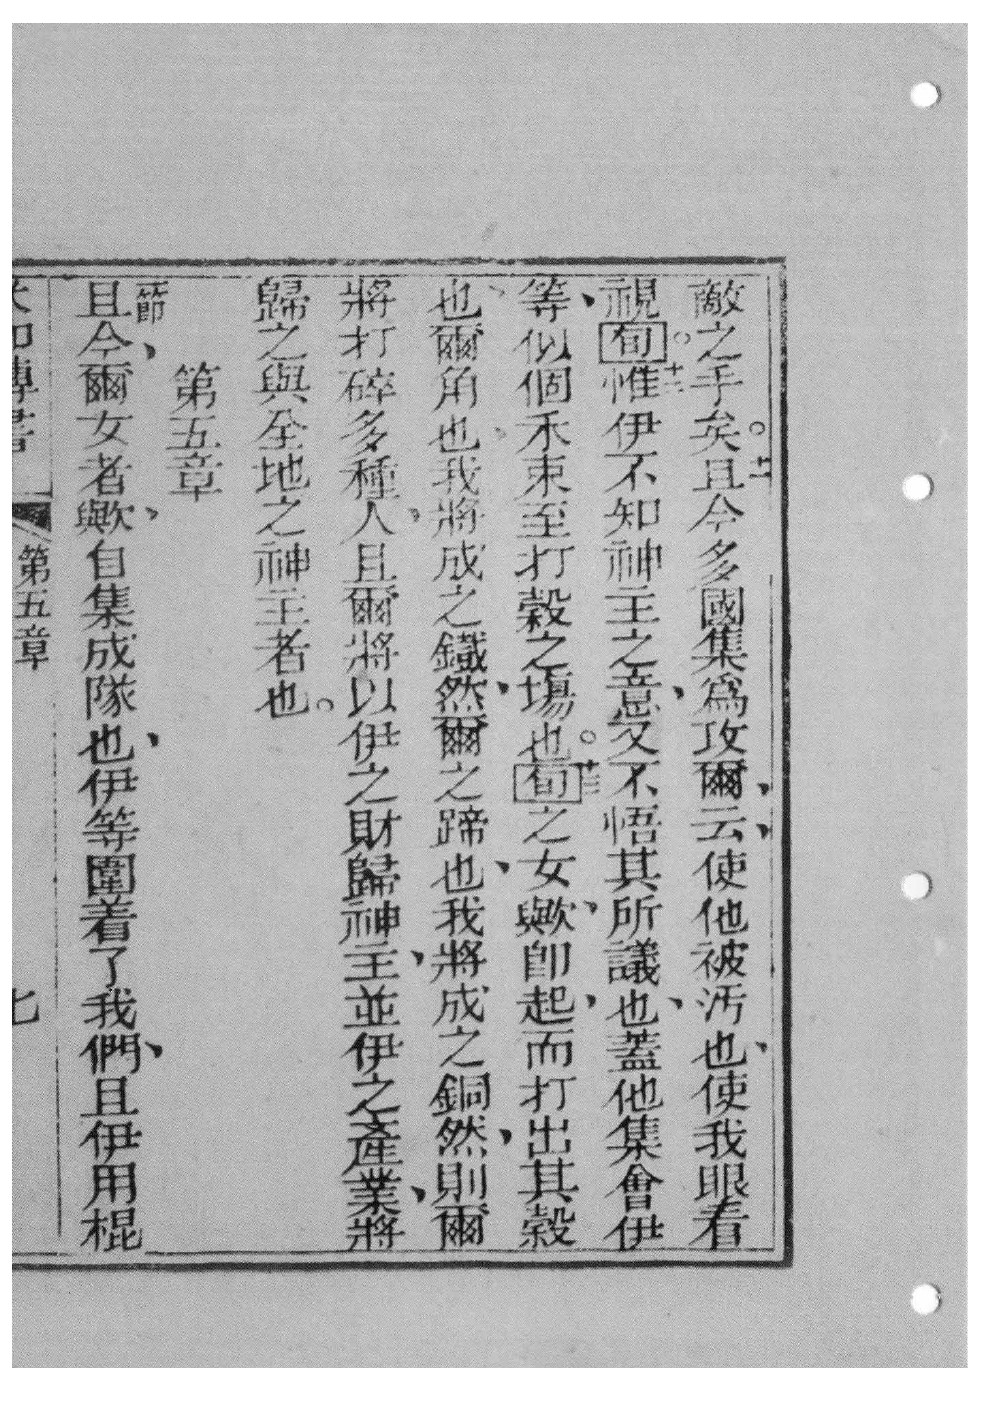 敵之手矣。十一且今多國集爲攻爾、云、使他被汚也、使我眼看
視旬。十二惟伊不知神主之意、又不悟其所議也、蓋他集會伊
等、似個禾束至打穀之場也。十三旬之女歟、卽起、而打出其穀
也、爾角也、我將成之鐵然、爾之蹄也、我將成之銅然、則爾
將打碎多種人、且爾將以伊之財歸神主、並伊之產業、將
歸之與全地之神主者也。
第五章
節且今、爾女者歟、自集成隊也、伊等圍着了我們、且伊用棍
傳書
第五章
七